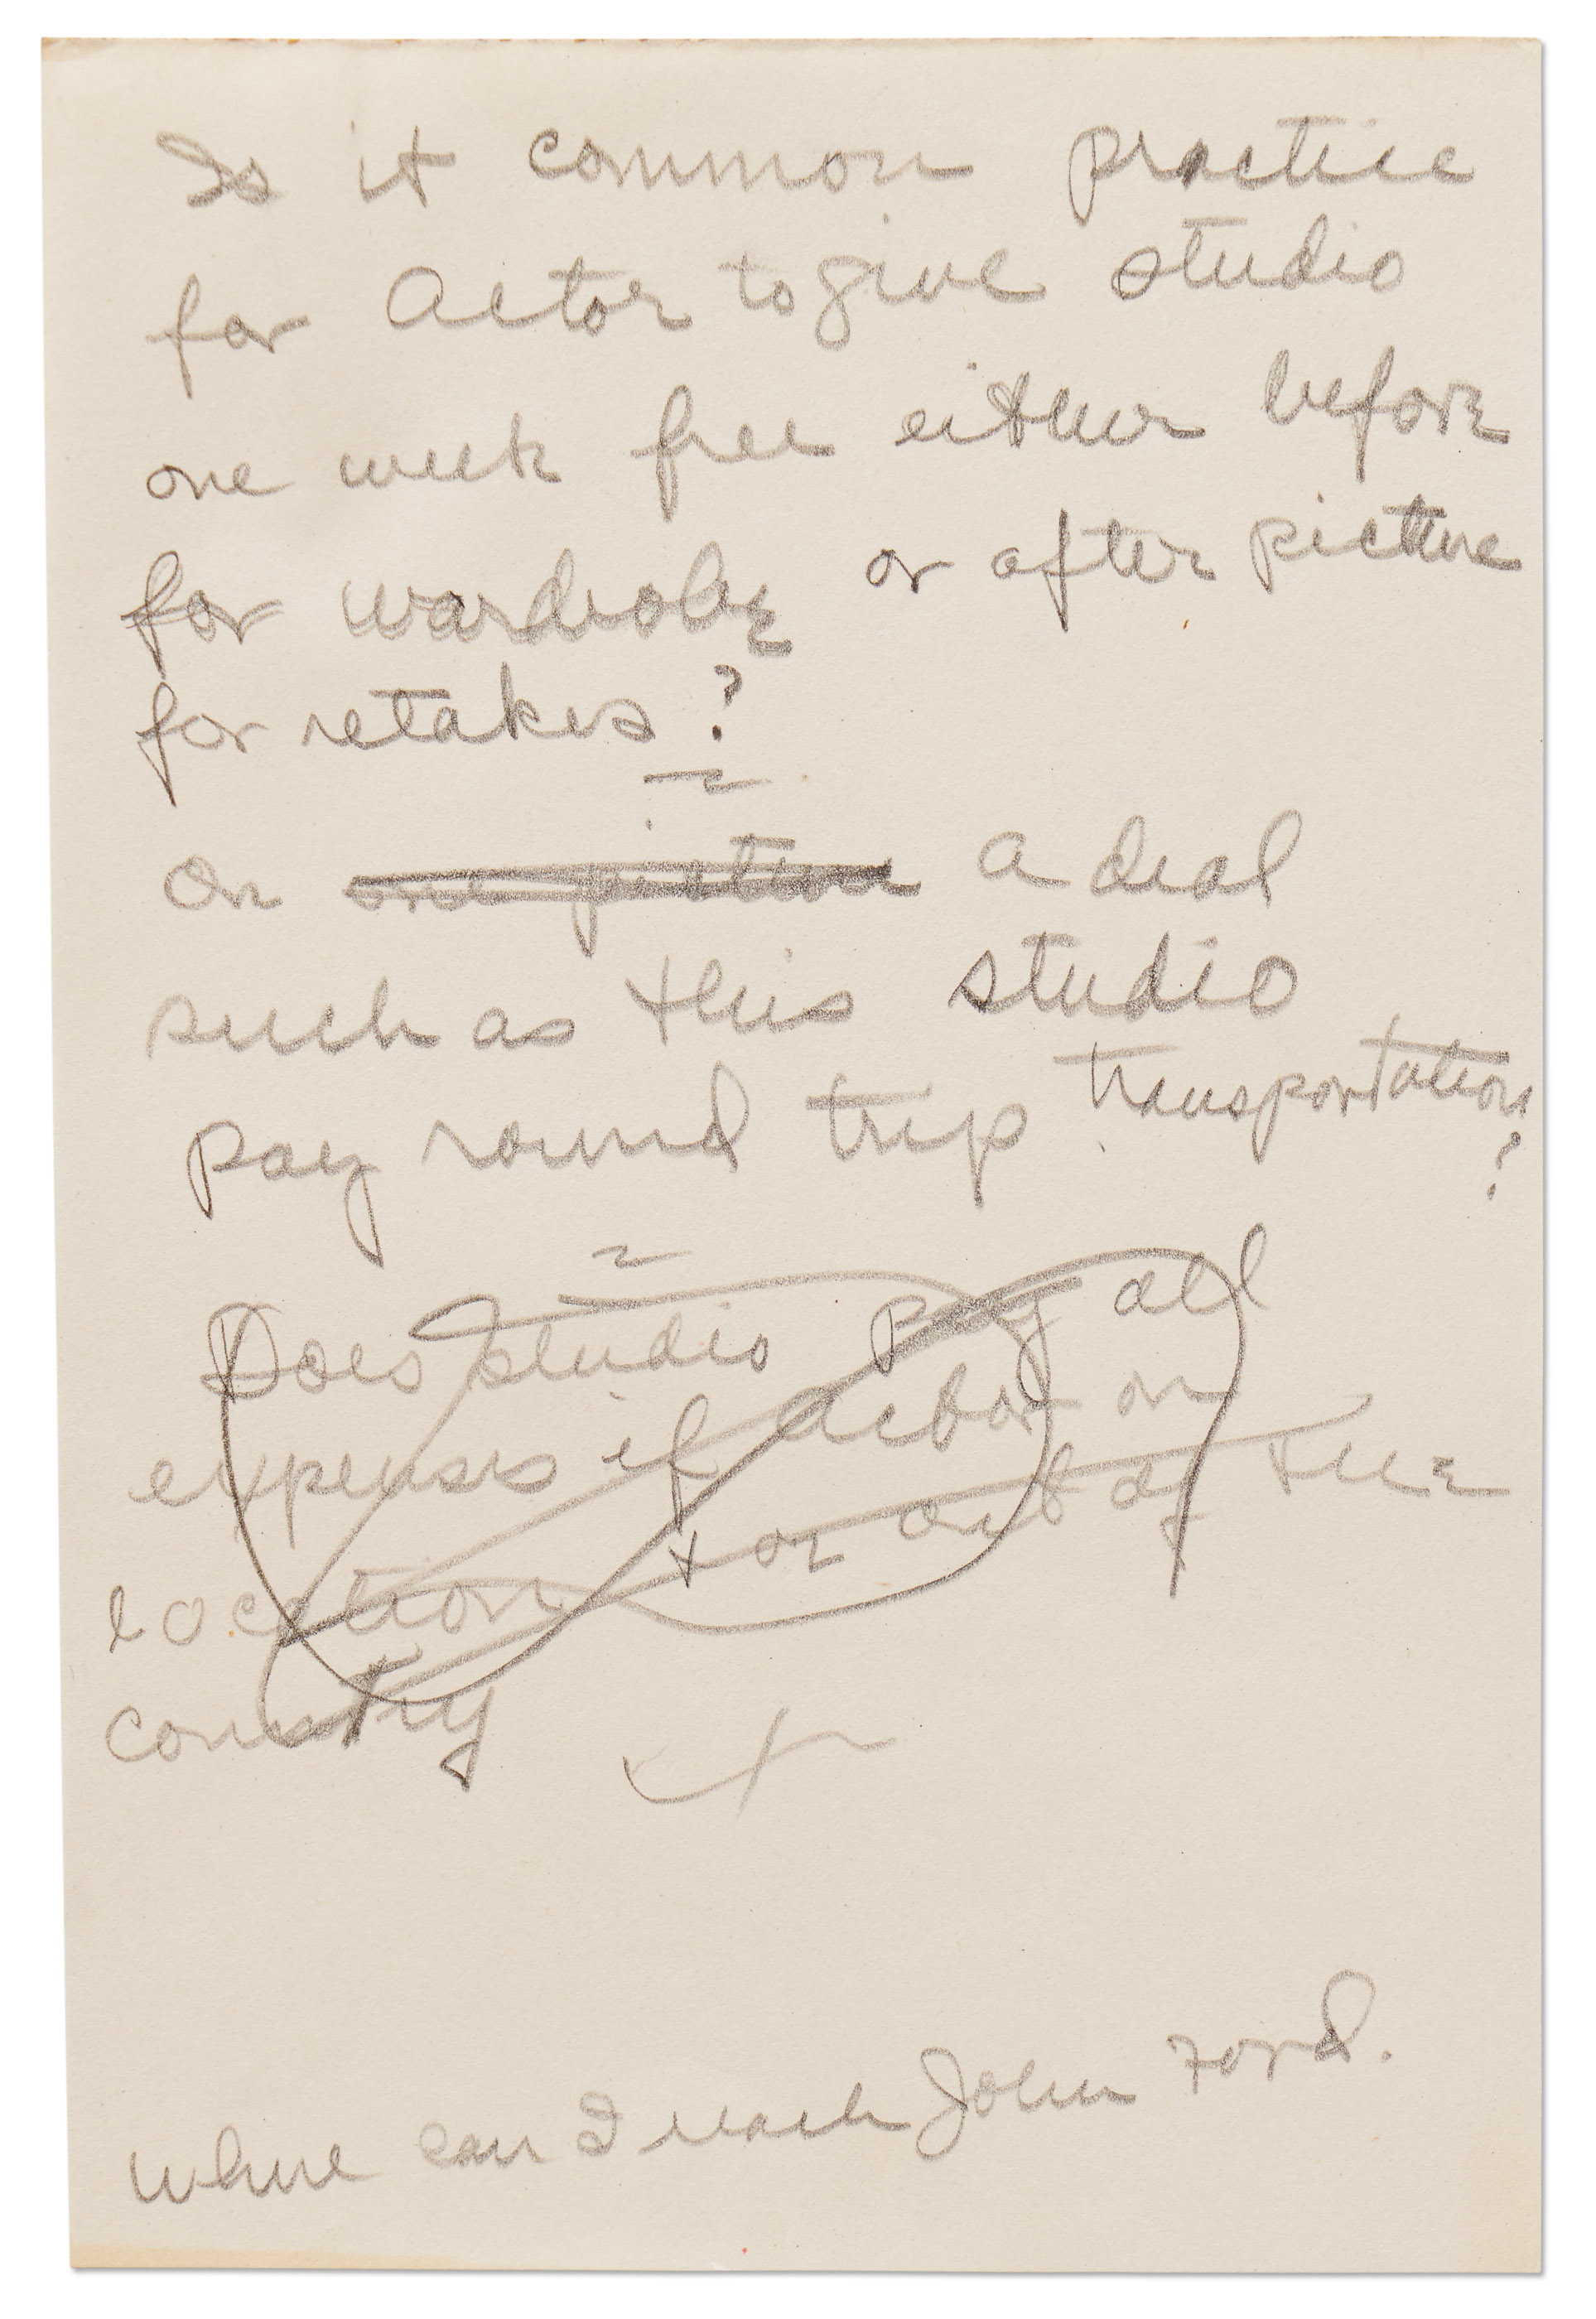 Is it common practice
for Actor to give studio
one week free either before
for wardrobe or after picture
for retakes?
on one picture a deal
such as this studio
pay round trip transportation
?
Does studio pay all
expenses if actor on
location + or out of the
country
where can I reach John Ford.